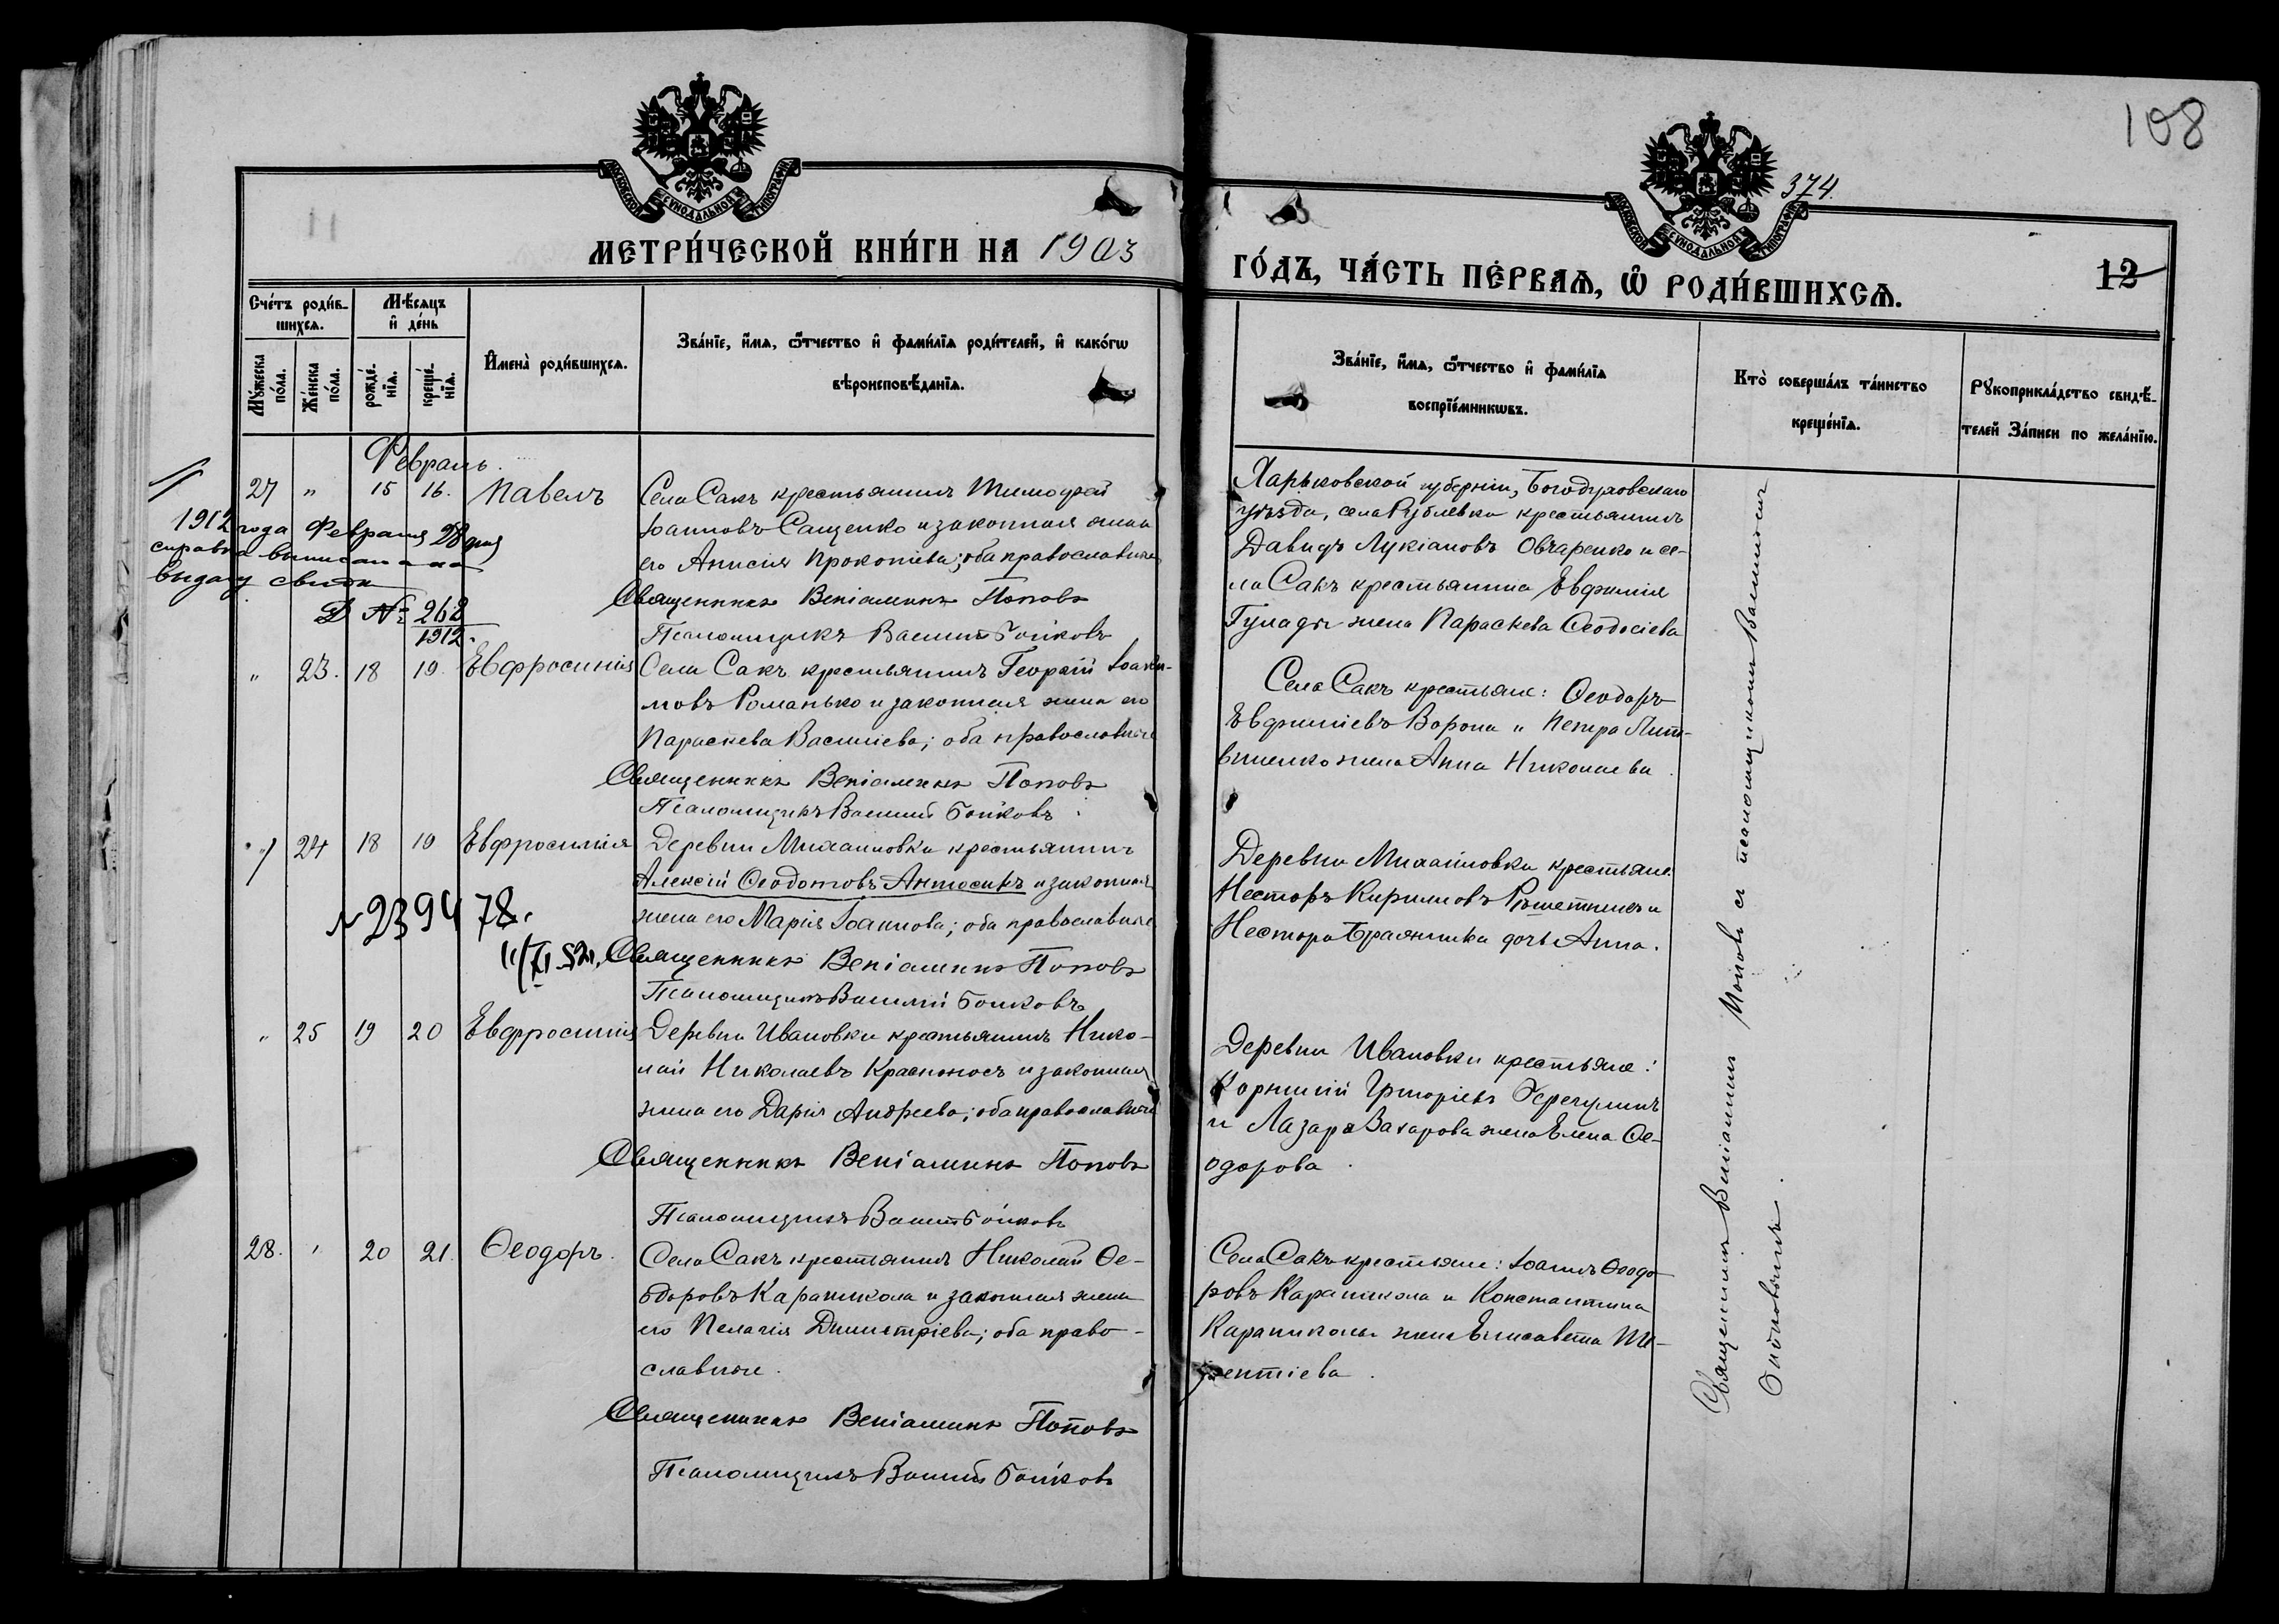 108
374.
МОСКОВСКОЙ СѴНОДАЛЬНОЙ ТИПОГРАФІИ
МОСКОВСКОЙ СѴНОДАЛЬНОЙ ТИПОГРАФІИ
11
МЕТРИ́ЧЕСКОЙ КНИ́ГИ НА 1903
ГО́ДЪ, ЧА́СТЬ ПЕ́РВАѦ, Ѡ РОДИ́ВШИХСѦ.
12
Сче́тъ роди́в-
шихсѧ.
Мꙋ́жеска по́ла.
Же́нска по́ла.
Мѣ́сѧцъ
и҆ де́нь
рожде́-
нїѧ.
креще́-
нїѧ.
И҆мена̀ роди́вшихсѧ.
Зва́нїе, и҆́мѧ, ѻ҆́тчество и҆ фами́лїѧ роди́телей, и҆ како́гѡ
вѣроисповѣ́данїѧ.
Зва́нїе, и҆́мѧ, ѻ҆́тчество и҆ фами́лїѧ
воспрїе́мникѡвъ.
Кто̀ соверша́лъ та́инство
креще́нїѧ.
Рꙋкоприкла́дство свидѣ́-
телей За́писи по жела́нїю.
Февраль.
27 " 15 16. Павелъ
Села Сакъ крестьянинъ Тимофей
Іоанновъ Сащенко и законная жена
его Анисія Прокопіева; оба православные
Священникъ Веніаминъ Поповъ
Псаломщикъ Василій Бойковъ
Харьковской губерніи, Богодуховскаго
уѣзда, села Рублевки крестьянинъ
Давидъ Лукіановъ Овчаренко и се-
ла Сакъ крестьянина Евфимія
Гулады жена Параскева Ѳеодосіева
1912 года Февраля 28 дня
справка выписана на
выдачу свидѣ
Д № 262
1912.
" 23. 18 19. Евфросинія
Села Сакъ крестьянинъ Георгій Іоаки-
мовъ Романько и законная жена его
Параскева Василіева; оба православные
Священникъ Веніаминъ Поповъ
Псаломщикъ Василій Бойковъ
Села Сакъ крестьяне: Ѳеодоръ
Евфиміевъ Ворона и Петра Лит-
виненко жена Анна Николаева.
" 24 18 19 Евфросинія
Деревни Михайловки крестьянинъ
Алексій Ѳеодотовъ Антосикъ и законная
жена его Марія Іоаннова; оба православные
Священникъ Веніаминъ Поповъ
Псаломщикъ Василій Бойковъ
Деревни Михайловки крестьяне:
Несторъ Кирилловъ Рѣшетникъ и
Нестора Бражника дочь Анна.
№ 239478.
11/XI 52г.
" 25 19 20 Евфросинія
Деревни Ивановки крестьянинъ Нико-
лай Николаевъ Красноносъ и законная
жена его Дарія Андреева; оба православные
Священникъ Веніаминъ Поповъ
Псаломщикъ Василій Бойковъ
Деревни Ивановки крестьяне:
Корнилій Григоріевъ
и Лазаря Захарова жена Елена Ѳе-
одорова.
28. " 20 21. Ѳеодоръ.
Села Сакъ крестьянинъ Николай Ѳе-
одоровъ Карапикола и законная жена
его Пелагія Димитріева; оба право-
славные.
Священникъ Веніаминъ Поповъ
Псаломщикъ Василій Бойковъ
Села Сакъ крестьяне: Іоаннъ Ѳеодо-
ровъ Карапикола и Константина
Карапиколы жена Елисавета Те-
рентіева.
Священникъ Веніаминъ Поповъ съ псаломщикомъ Василіемъ
Бойковымъ.